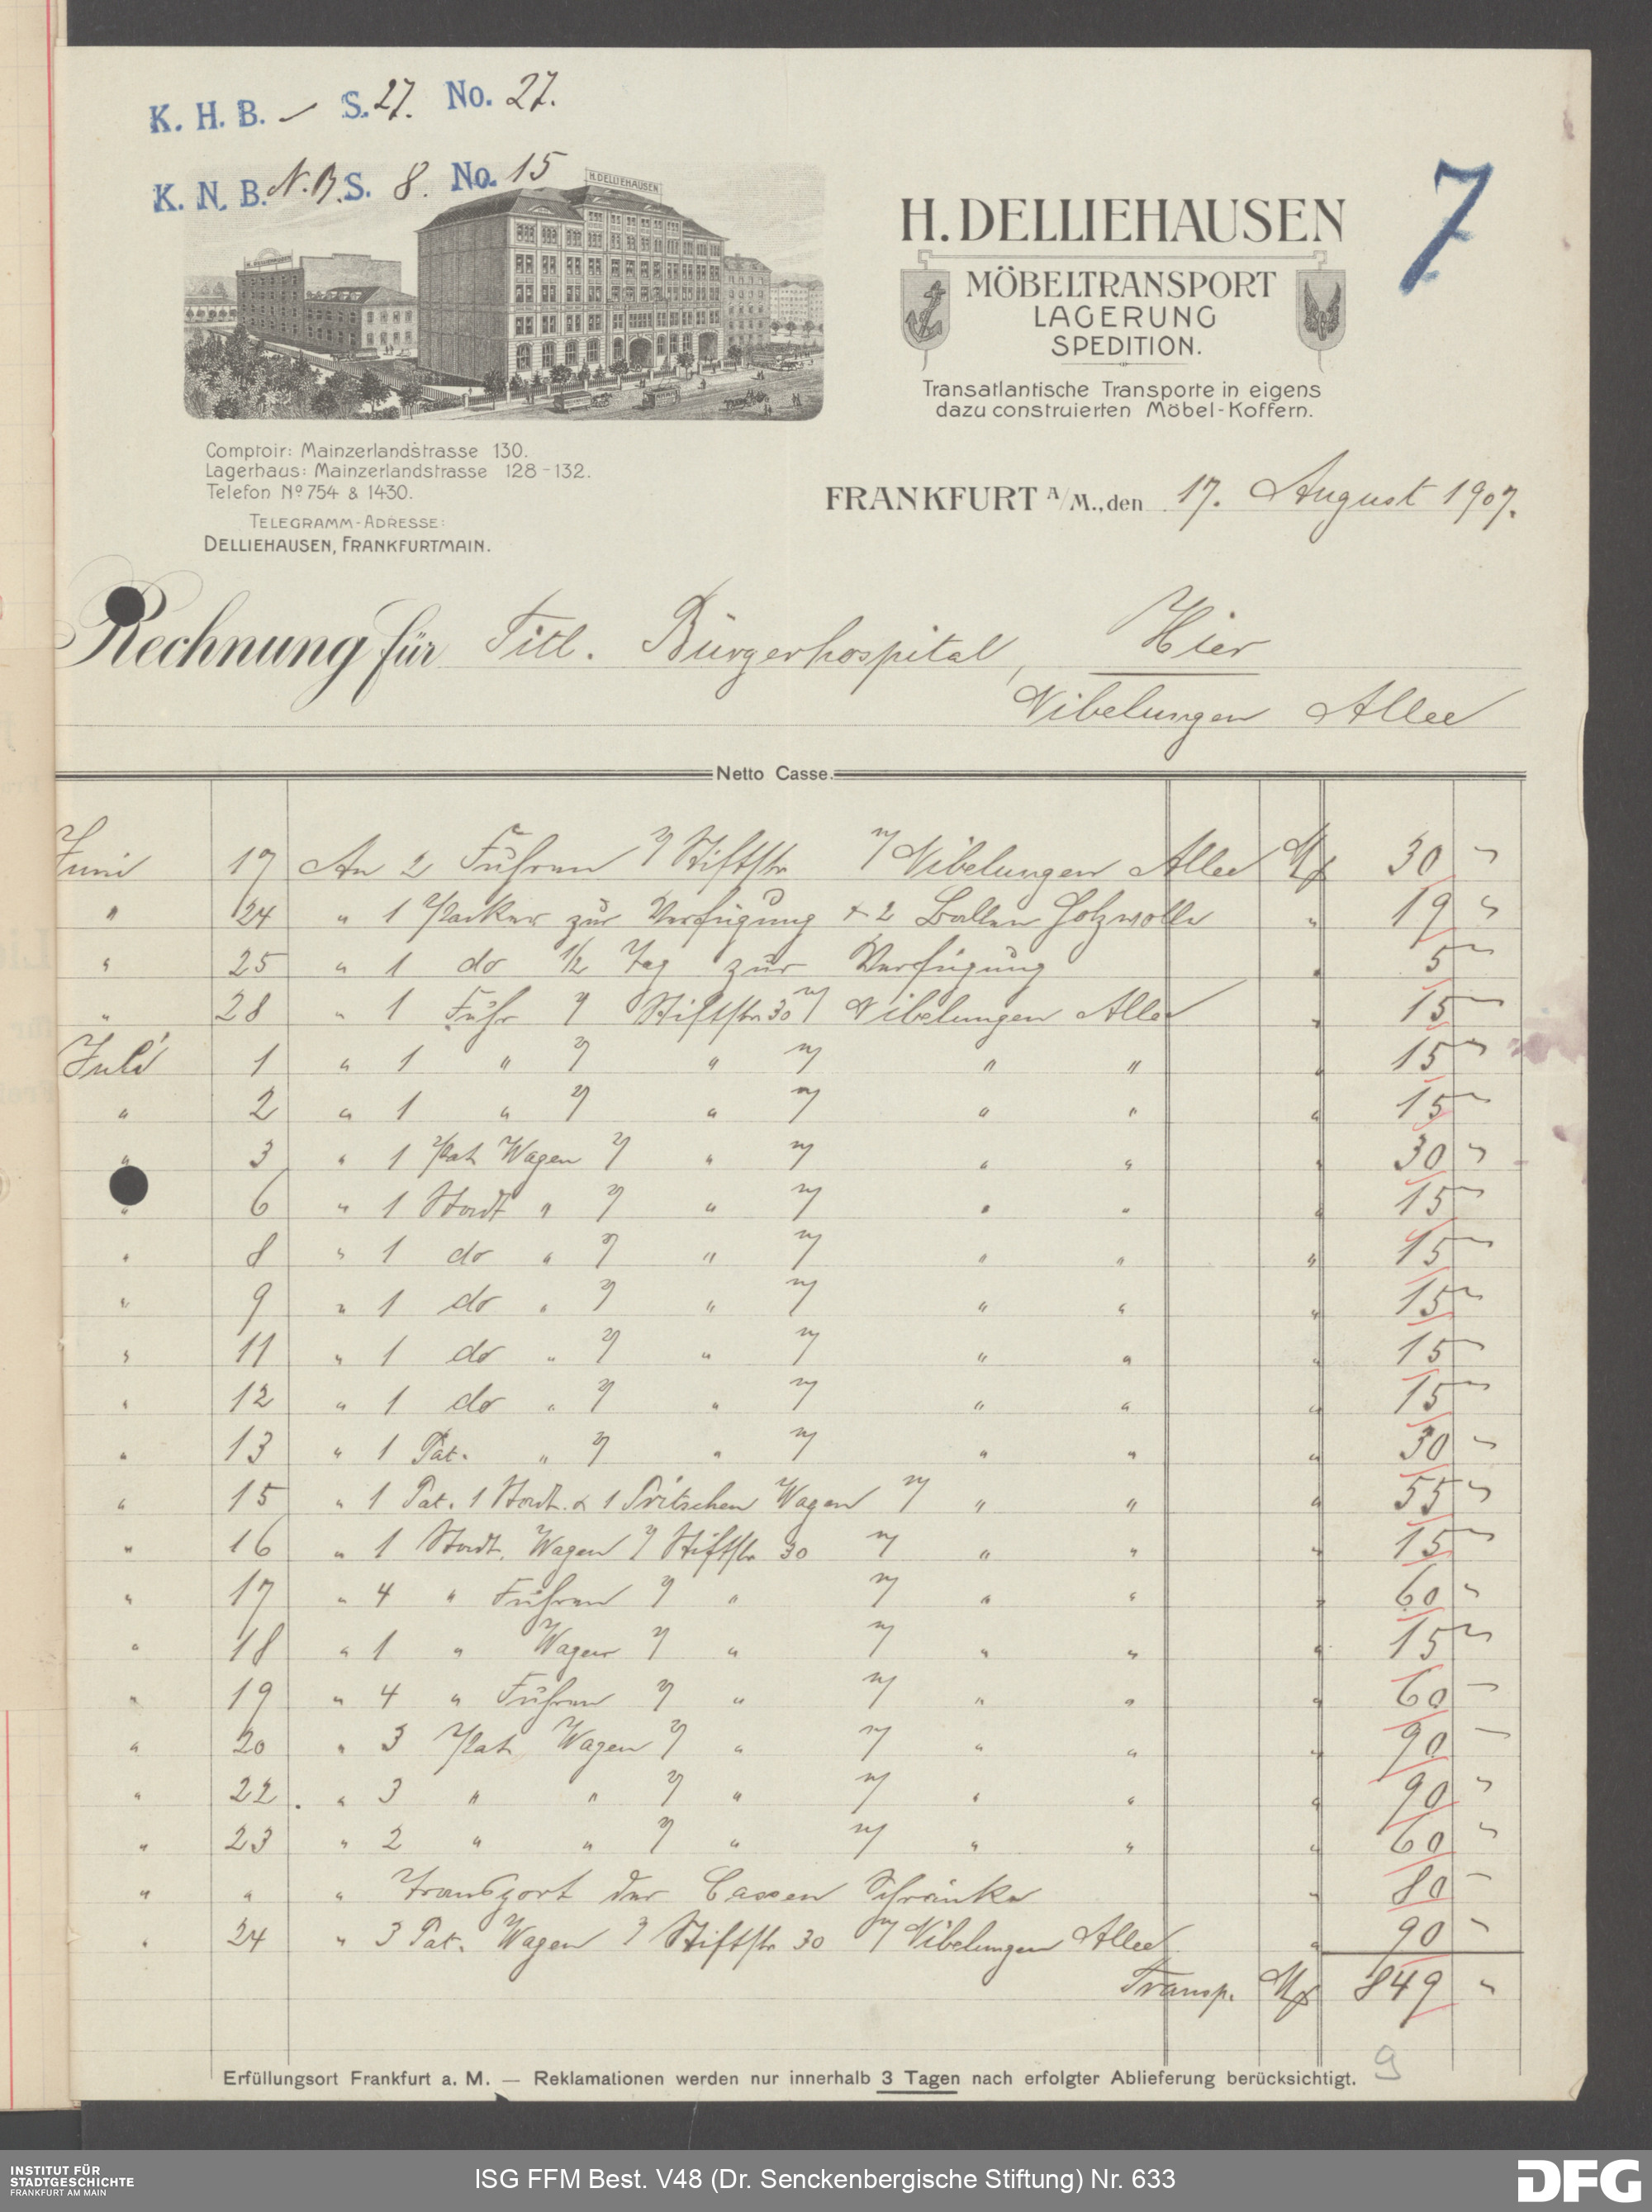 K. H. B. – S. 27. No. 27.
K. N. B. N.B. S. 8. No. 15
H. DELLIEHAUSEN
H. DELLIEHAUSEN
H. DELLIEHAUSEN
7
MÖBELTRANSPORT
LAGERUNG
SPEDITION.
Transatlantische Transporte in eigens
dazu construierten Möbel-Koffern.
Comptoir: Mainzerlandstrasse 130.
Lagerhaus: Mainzerlandstrasse 128-132.
Telefon No 754 & 1430.
TELEGRAMM-ADRESSE:
DELLIEHAUSEN, FRANKFURTMAIN.
FRANKFURT A/M., den 17. August 1907.
Rechnung für Titl. Bürgerhospital, Hier
Nibelungen Allee
Netto Casse.
Juni 17 An 2 Fuhren v/ Stiftstr n/ Nibelungen Allee M 30 –
" 24 " 1 Packer zur Verfügung + 2 Ballen Holzwolle " 19 –
" 25 " 1 do 1/2 Tag zur Verfügung " 5 –
" 28 " 1 Fuhr v/ Stiftstr 30 n/ Nibelungen Allee " 15 –
Juli 1 " 1 " v/ " n/ " " " 15 –
" 2 " 1 " v/ " n/ " " " 15 –
" 3 " 1 Pat. Wagen v/ " n/ " " " 30 –
" 6 " 1 Stadt " v/ " n/ " " " 15 –
" 8 " 1 do " v/ " n/ " " " 15 –
" 9 " 1 do " v/ " n/ " " " 15 –
" 11 " 1 do " v/ " n/ " " " 15 –
" 12 " 1 do " v/ " n/ " " " 15 –
" 13 " 1 Pat. " v/ " n/ " " " 30 –
" 15 " 1 Pat. 1 Stadt. & 1 Pritschen Wagen n/ " " " 55 –
" 16 " 1 Stadt. Wagen v/ Stiftstr 30 n/ " " " 15 –
" 17 " 4 " Fuhren v/ " n/ " " " 60 –
" 18 " 1 " Wagen v/ " n/ " " " 15 –
" 19 " 4 " Fuhren v/ " n/ " " " 60 –
" 20 " 3 Pat. Wagen v/ " n/ " " " 90 –
" 22. " 3 " " v/ " n/ " " " 90 –
" 23 " 2 " " v/ " n/ " " " 60 –
" " " Transport der Cassen Schränke " 80 –
" 24 " 3 Pat. Wagen v/ Stiftstr 30 n/ Nibelungen Allee " 90 –
Transp. M 849 –
9
Erfüllungsort Frankfurt a. M. — Reklamationen werden nur innerhalb 3 Tagen nach erfolgter Ablieferung berücksichtigt.
INSTITUT FÜR
STADTGESCHICHTE
FRANKFURT AM MAIN
ISG FFM Best. V48 (Dr. Senckenbergische Stiftung) Nr. 633
DFG